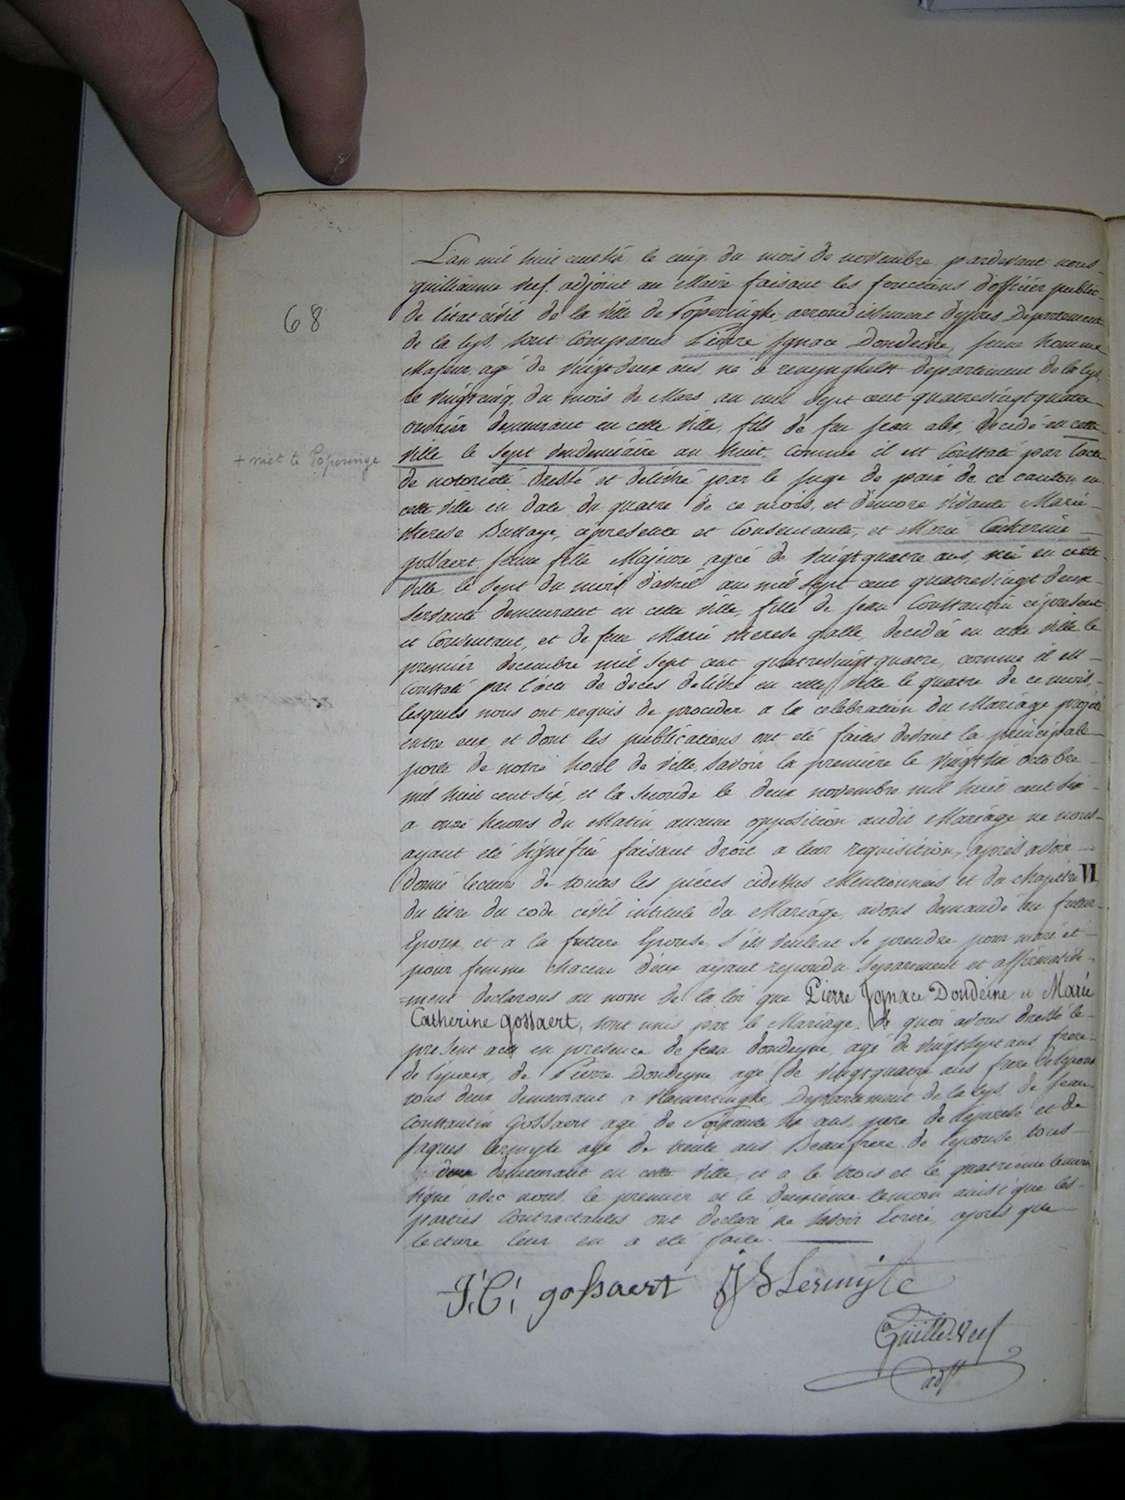 68
+ niet te Poperinge
L'an mil huit cent six le cinq du mois de novembre pardevant nous
guilliaume Veef. adjoint au Maire faisant les fonctions d'officier public
de l'état civil de la Ville de Poperinghe, arrondissement d'ypres, Departement
de la lys, sont Comparus Pierre Ignace Doudeine, jeune homme
Majeur, agé de Vingt deux ans, né à reninghelst departement de la lys,
le Vingt cinq du mois de Mars an mil Sept cent quatrevingt quatre
ouvrier demeurant en cette Ville, fils de feu jean alex, decedé en cette
Ville le Sept Vendemiaire an huit, Comme il est Constaté par l'acte
de notorieté dressé et delivré par le juge de paix de ce canton en
cette Ville en date du quatre de ce mois, et d'encore Vivante Marie
therese , cipresente et Consentante, et Marie Catherine
gossaert, jeune fille Majeure, agée de Vingt quatre ans, née en cette
Ville, le Sept du mois d'avril an mil Sept cent quatrevingt deux
Servante demeurant en cette Ville, fille de jean Constantin ci present
et Consentant, et de feu Marie therese galle, decedée en cette Ville le
premier decembre mil Sept cent quatrevingt quatre, comme il est
Constaté par l'acte de deces delivré en cette Ville le quatre de ce mois,
lesquels nous ont requis de proceder a la celebration du Mariage projeté
entre eux, et dont les publications ont été faites devant la principale
porte de notre hotel de Ville, Savoir la premiere le Vingt six octobre
mil huit cent Six, et la Seconde le deux novembre mil huit cent six
a onze heures du Matin, aucune opposition audit Mariage ne nous
ayant été Signifiée faisant droit a leur requisition, après avoir
donné lecture de toutes les pièces cidessus Mentionnées et du chapitre VI
du titre du code civil intitulé du Mariage, avons demandé au futur
Epoux, et a la future Epouse, S'ils Veulent Se prendre pour mari et
pour femme chacun d'eux ayant repondu Separement et affirmative-
=ment declarons au nom de la loi que Pierre Ignace Doudeine et Marie
Catherine gossaert, sont unis par le Mariage, de quoi avons dressé le
present acte en presence de jean doudeyne, agé de Vingt Sept ans frere
de l'epoux, de Pierre Doudeyne, agé de Vingt quatre ans frere de l'epoux
tous deux demeurant a Vlamertinghe, Departement de la lys, de jean
Constantin Gossaert agé de Soixante ans, pere de l'epouse et de
jaques Lermyte agé de trente ans Beaufrere de l'epouse tous
deux demeurant en cette Ville, et a le trois et le quatrieme temoin
Signé avec nous, le premier et le deuxième temoin ainsi que les
parties Contractantes ont declaré ne Savoir Ecrire, après que
lecture leur en a été faite.
J: C: gossaert J J Lermyte
Guille Veef
adjt